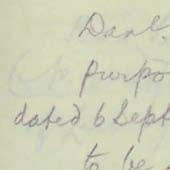 Danl.
purpo
dated 6 Sept
to be